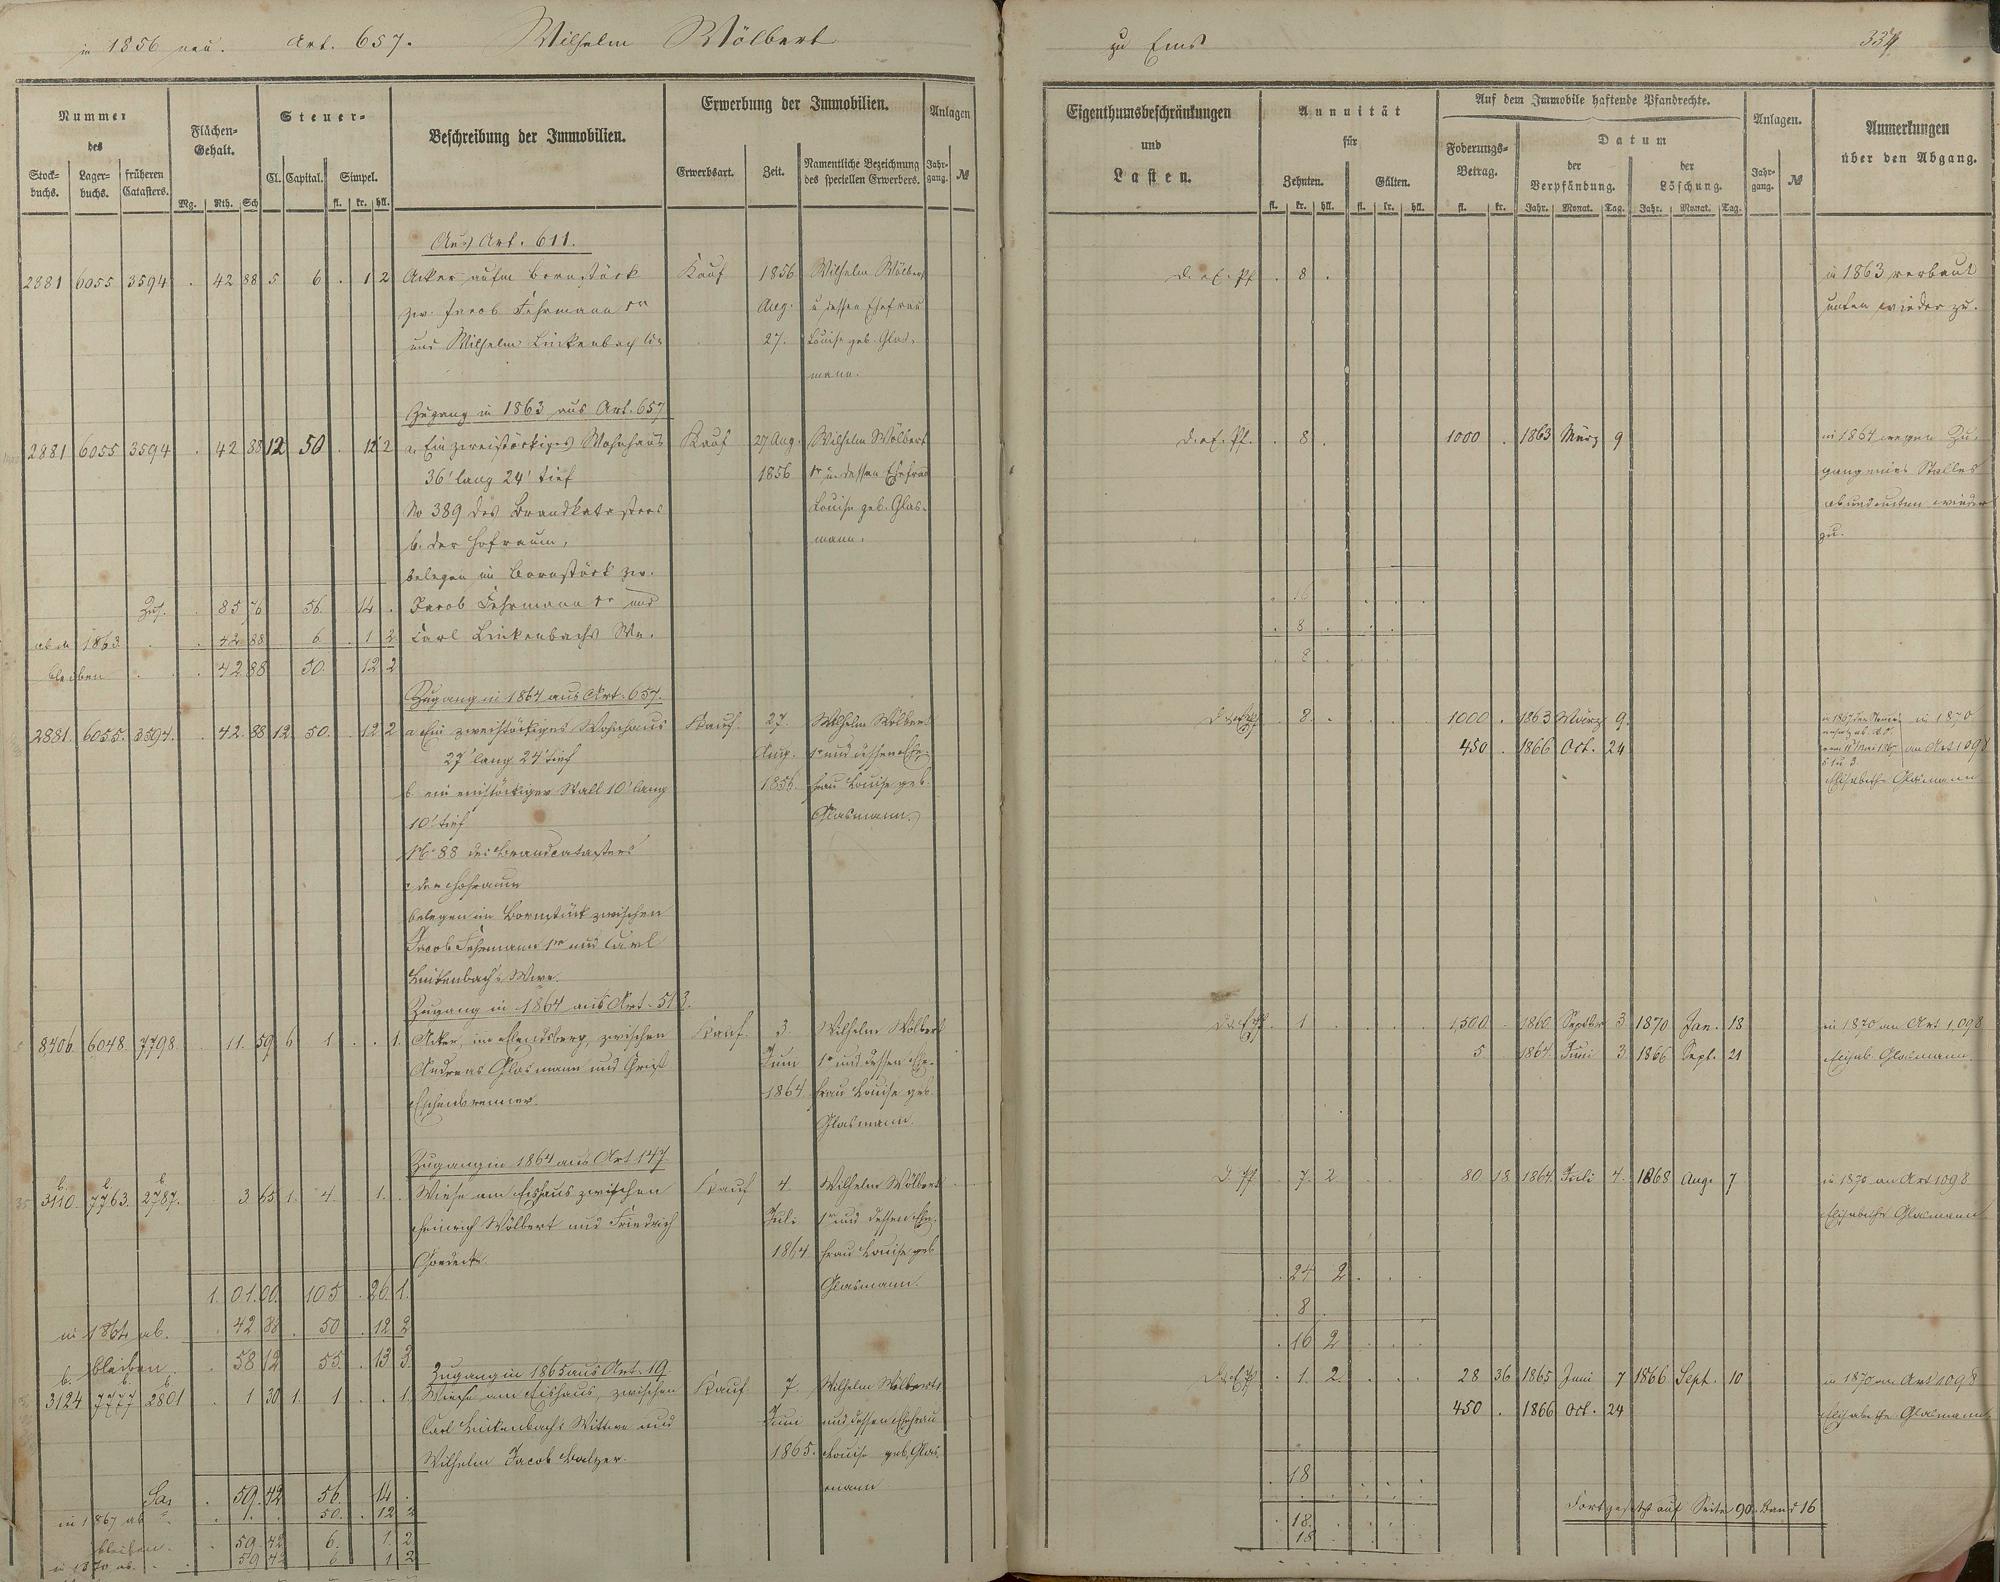 in 1856 neu. Art. 657. Wilhelm Wölbert
Nummer
des
Stock-
buchs.
Lager-
buchs.
früheren
Catasters.
Flächen-
Gehalt.
Mg. Rth. Sch
Steuer-
Cl. Capital. Simpel.
fl. kr. hll.
Beschreibung der Immobilien.
Erwerbung der Immobilien.
Erwerbsart. Zeit.
Namentliche Bezeichnung
des speciellen Erwerbers.
Anlagen
Jahr-
gang. №
Aus Art. 611.
2881 6055 3594 . 42 88 5 6 . 1 2 Acker aufm Bornstück Kauf 1856 Wilhelm Wölbert
zw. Jacob Fehrmann Aug. u dessen Ehefrau
und Wilhelm Linkenbach 27. Louise geb. Glas-
mann.
Zugang in 1863 aus Art. 657
2881 6055 3594 . 42 88 12 50 . 12 2 a. Ein zweistöckiges Wohnhaus Kauf 27 Aug. Wilhelm Wölbert
36' lang 24' tief 1856 1r u. dessen Ehefrau
No 389 des Brandkatasters Louise geb. Glas-
b. der Hofraum, mann.
belegen im Bornstück zw.
Zus. . 85 76 56. 14 . Jacob Fehrmann 1r und
ab in 1863 . 42 88 6 . 1 2 Carl Linkenbachs We.
bleiben . 42 88 50. 12 2
Zugang in 1864 aus Art. 657.
2881. 6055. 3594. . 42. 88 12. 50. . 12 2 a. Ein zweistöckiges Wohnhaus Kauf. 27. Wilhelm Wölbert
27' lang 24' tief Aug. 1r und dessen Ehe-
b. ein einstöckiger Stall 10' lang 1856. frau Louise geb.
10' tief Glasmann.
des Brandcatasters
c. der Hofraum
belegen im Bornstück zwischen
Jacob Fehrmann 1r und Carl
Linkenbach's Wwe.
Zugang in 1864 aus Art. 513.
8406. 6048. 7798. . 11. 59 6 1 . . 1. Acker, im, zwischen Kauf. 3. Wilhelm Wölbert
Andreas Glasmann und Christ. Juni 1r und dessen Ehe-
Eschenbrenner. 1864. frau Louise geb.
Glasmann.
Zugang in 1864 aus Art 147.
b. b. b.
3110. 7763. 2787. . 3. 65 1. 4 1. . Wiese am Eishaus zwischen Kauf 4 Wilhelm Wölbert
Heinrich Wölbert und Friedrich Juli 1r und dessen Ehe-
1864 frau Louise geb.
Glasmann.
1. 01. 00. 105 . 26. 1.
in 1864 ab. . 42 88 . 50 . 12 2
bleiben . 58 12 55. . 13 3.
Zugang in 1865 aus Art. 19.
b. b. b.
3124 7777 2801 1 30 1. 1 . . 1. Wiese am Eishaus, zwischen Kauf 7 Wilhelm Wölbert 1
Carl Linkenbach's Wittwe und Juni und dessen Ehefrau
Wilhelm Jacob Balzer. 1865. Louise geb. Glas-
mann.
Sa. . 59. 42 56. 14 .
in 1867 ab . 1. . 50. . 12 2
bleiben. . 59. 42 6. 1. 2.
in 1870 ab. . 59 42 6 1 2
zu Ems 334
Eigenthumsbeschränkungen
und
Lasten.
Annuität
für
Zehnten. Gülten.
fl. kr. hll. fl. kr. hll.
Auf dem Immobile haftende Pfandrechte.
Foderungs-
Betrag.
fl. kr.
Datum
der
Verpfändung.
Jahr. Monat. Tag.
der
Löschung.
Jahr. Monat. Tag.
Anlagen.
Jahr-
gang. №
Anmerkungen
über den Abgang.
. 8 . in 1863 verbaut
unten wieder zu.
. 8 . 1000 . 1863 März 9 in 1864 wegen Zu-
gang eines Stalles
ab und unten wieder
zu.
. 16 .
. 8 .
. 8 .
. 8. . 1000 . 1863 März 9. in 1870
450 . 1866 Oct. 24 an Art 1098
Elisabethe Glasmann
. 1 . 1500 1860. Septbr 3 1870 Jan. 18 in 1870 an Art 1098
5 1864. Juni 3 1866 Sept. 21 Elisab. Glasmann.
. 7. 2 80 18 1864. Juli 4. 1868 Aug. 7 in 1870 an Art 1098
Elisabethe Glasmann
. 24 2
. 8 .
. 16 2
. 1. 2 28 36 1865 Juni 7 1866 Sept. 10 in 1870 an Art 1098
450 . 1866 Oct. 24 Elisabethe Glasmann
. 18
Fortgesetzt auf Seite 90. Band 16
. 18.
18